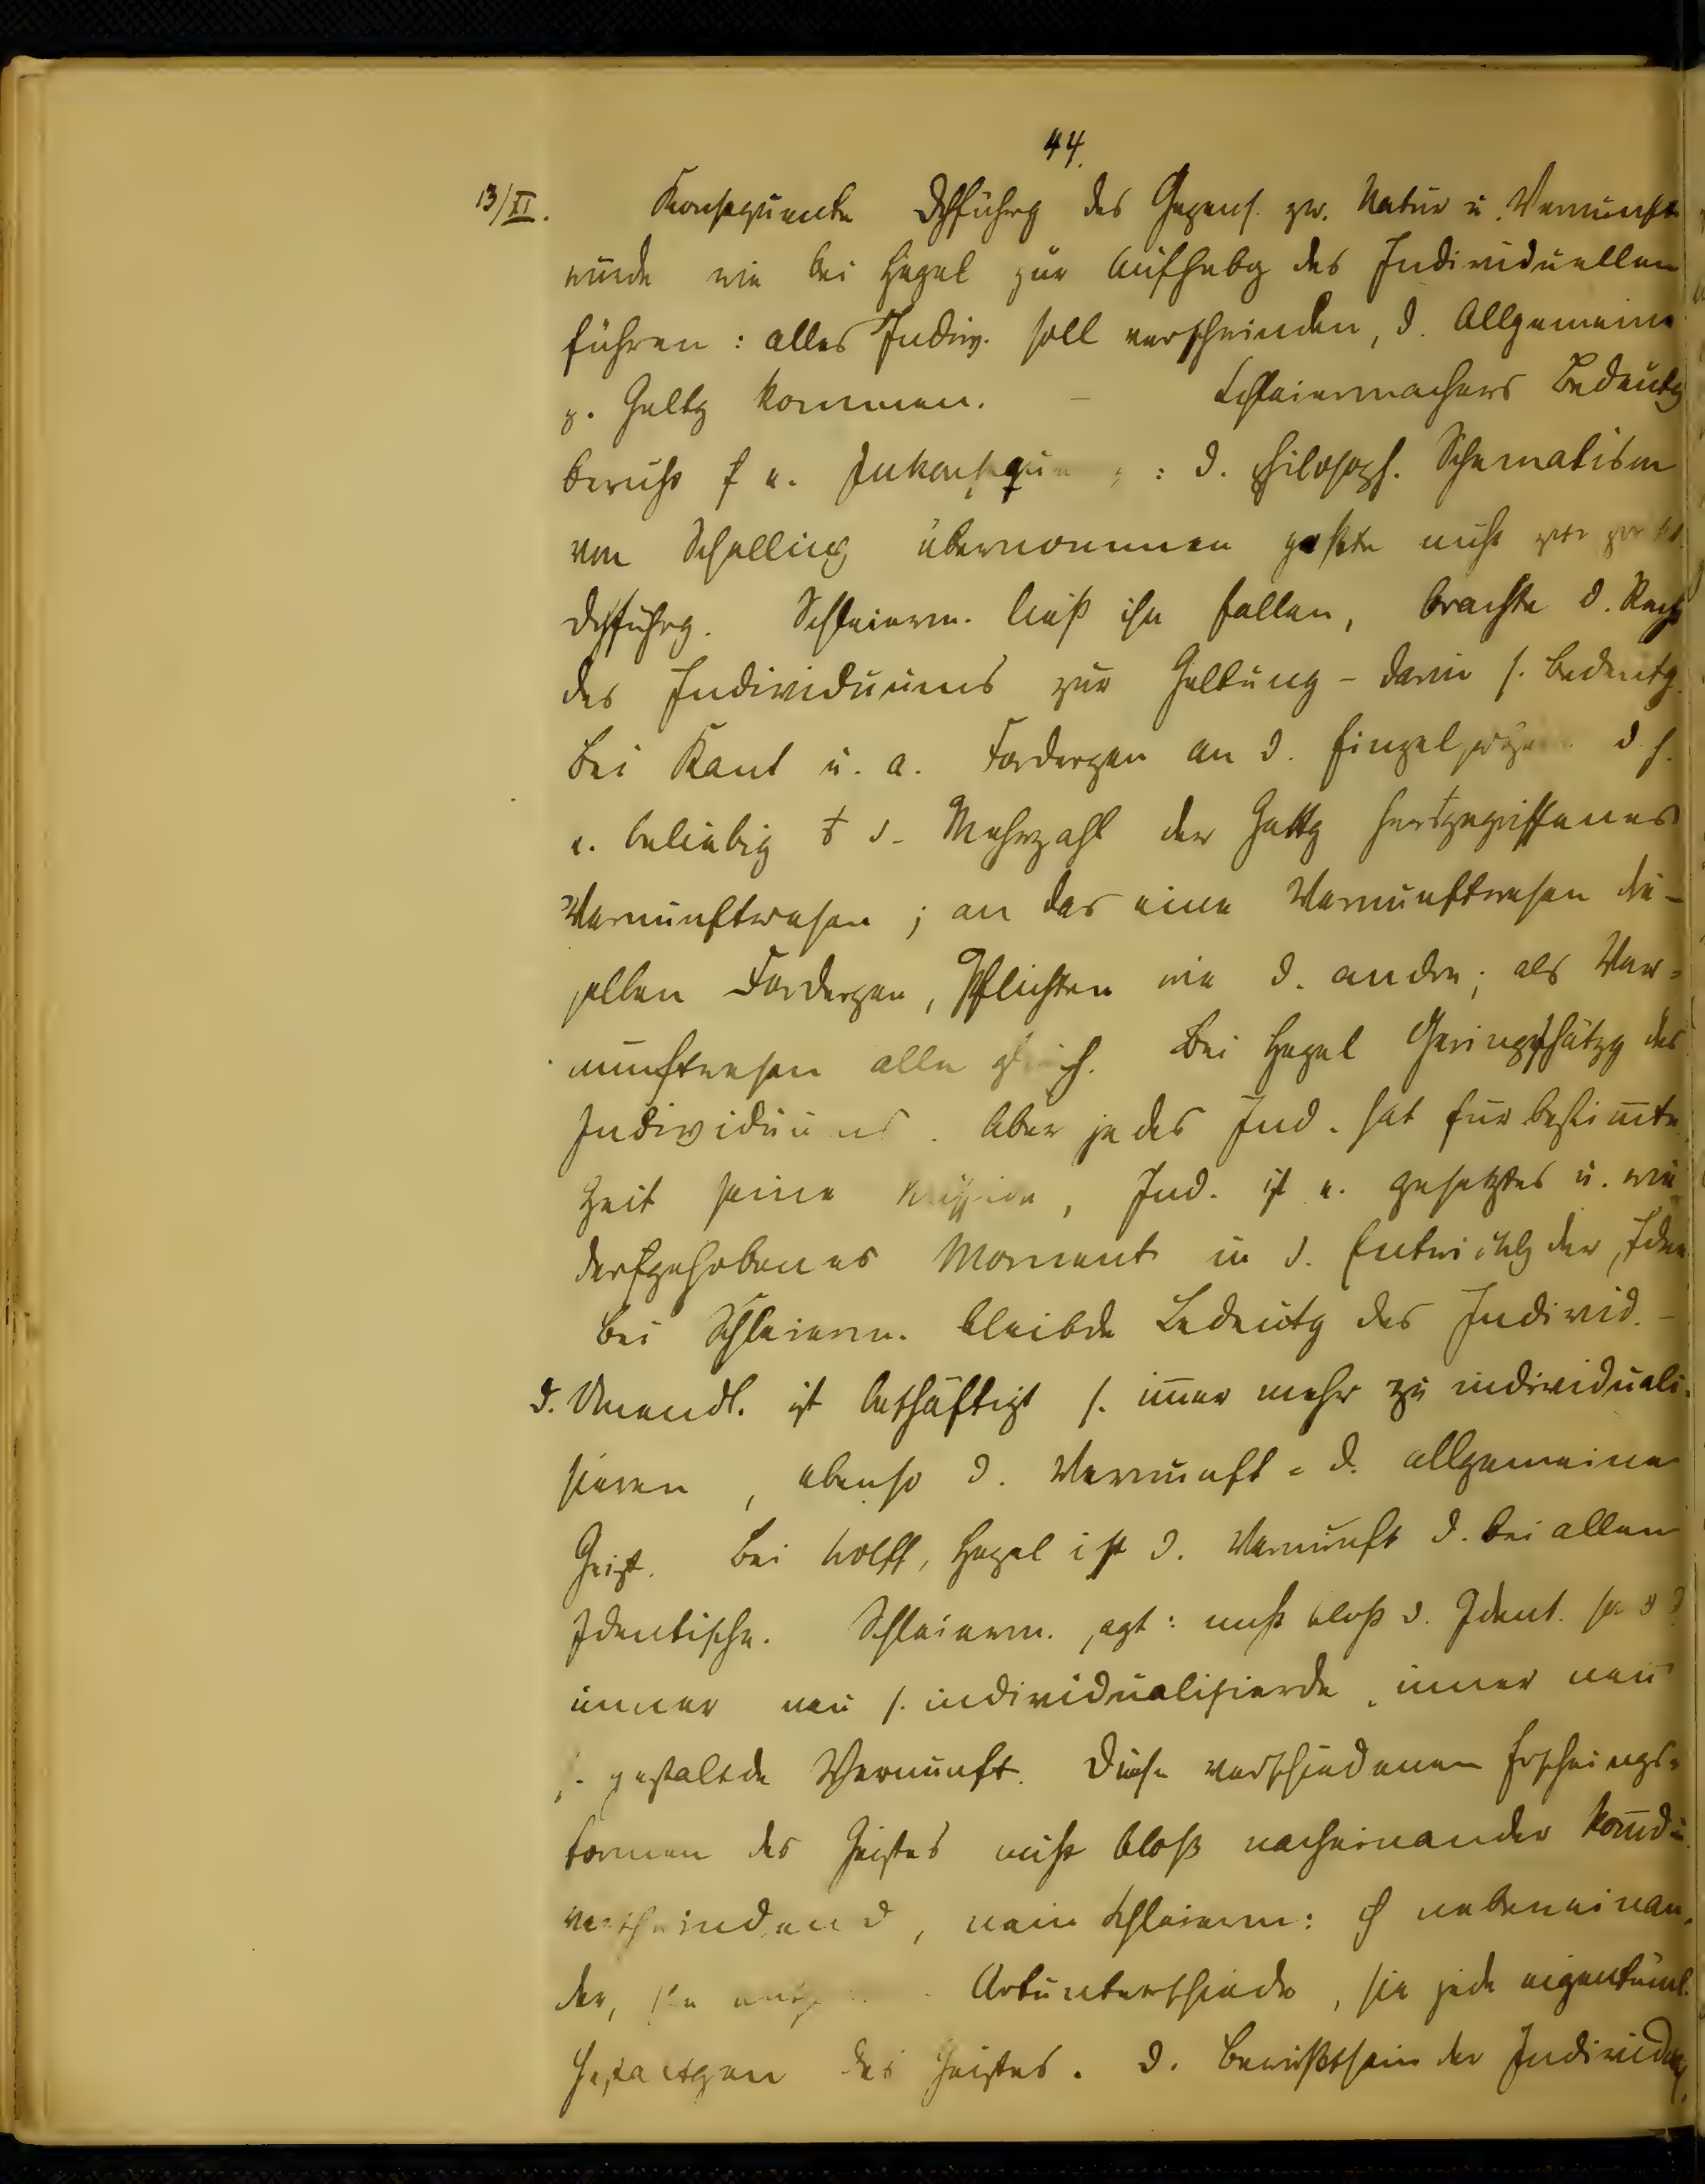 44.
13/II. Konsequente Dchführg des Gegens. zw. Natur u. Vernunft
würde wie bei Hegel zur Aufhebg des Individuellen
führen: alles Indiv. soll verschwinden, d. Allgemeine
z. Geltg kommen. – Schleiermachers Bedeutg
beruht e. : d. philosoph. Schematism
von Schelling übernommen paßte nicht
Dchführg. Schleierm. ließ ihn fallen, brachte d. Recht
des Individuums zur Geltung – darin s. Bedeutg.
Bei Kant u. a. Fordergen an d. d. h.
e. beliebig d. Mehrzahl der Gattg
Vernunftwesen; an das eine Vernunftwesen die-
selben Fordergen, Pflichten wie d. andre; als Ver-
nunftwesen alle gleich. Bei Hegel Geringschätzg des
Individuums. Aber jedes Ind. hat für bestim̅te
Zeit seine Mission, Ind. ist e. gesetztes u. wie-
Moment in d. Entwicklg der Idee
Bei Schleierm. bleibde Bedeutg des Individ. –
D. Unendl. ist bethäftigt s. im̅er mehr zu individuali-
sieren, ebenso d. Vernunft = d. allgemeine
Geist. Bei Wolff, Hegel ist d. Vernunft d. bei allen
Identische. Schleierm. sagt: nicht bloß d. Ident.
immer neu s. individualisierde, immer neu
s. gestaltde Vernunft. Diese verschiedenen Erscheings-
formen des Geistes nicht bloß nacheinander kom̅d u.
verschwindend, nein Schleierm: nebeneinan-
der, Artunterschiede, sie jede eigentüml.
Gestaltgen des Geistes. D. Bewußtsein der